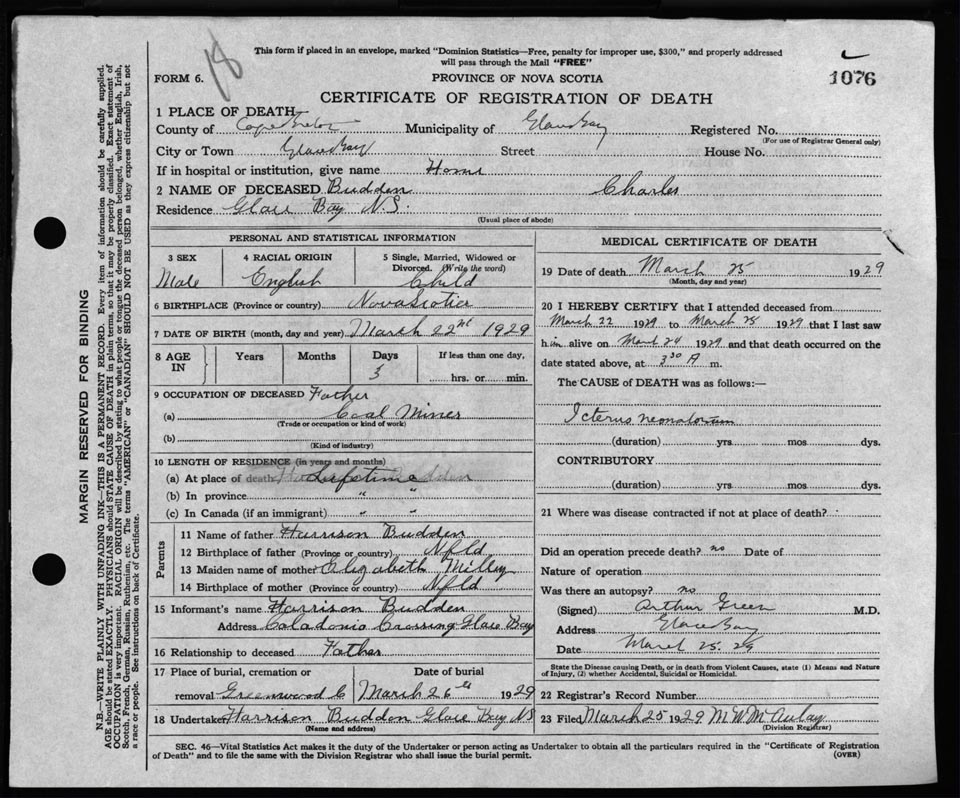 18
This form if placed in an envelope, marked "Dominion Statistics—Free, penalty for improper use, $300," and properly addressed
will pass through the Mail "FREE"
FORM 6. PROVINCE OF NOVA SCOTIA 1076
CERTIFICATE OF REGISTRATION OF DEATH
1 PLACE OF DEATH
County of Cape Breton Municipality of Glace Bay Registered No.
(For use of Registrar General only)
City or Town Glace Bay Street House No.
If in hospital or institution, give name Home
2 NAME OF DECEASED Budden Charles
Residence Glace Bay N.S.
(Usual place of abode)
PERSONAL AND STATISTICAL INFORMATION
3 SEX 4 RACIAL ORIGIN 5 Single, Married, Widowed or Divorced. (Write the word)
Male English Child
6 BIRTHPLACE (Province or country) Nova Scotia
7 DATE OF BIRTH (month, day and year) March 22nd 1929
8 AGE IN Years Months Days If less than one day,
3 hrs. or min.
9 OCCUPATION OF DECEASED Father
(a) Coal Miner
(Trade or occupation or kind of work)
(b)
(Kind of industry)
10 LENGTH OF RESIDENCE (in years and months)
(a) At place of death Lifetime
(b) In province " "
(c) In Canada (if an immigrant) " "
Parents
11 Name of father Harrison Budden
12 Birthplace of father (Province or country) Nfld
13 Maiden name of mother Elizabeth Milley
14 Birthplace of mother (Province or country) Nfld
15 Informant's name Harrison Budden
Address Caladonia Crossing Glace Bay
16 Relationship to deceased Father
17 Place of burial, cremation or removal Greenwood C Date of burial March 26th 1929
18 Undertaker Harrison Budden Glace Bay NS
(Name and address)
MEDICAL CERTIFICATE OF DEATH
19 Date of death March 25 1929
(Month, day and year)
20 I HEREBY CERTIFY that I attended deceased from
March 22 1929 to March 25 1929 that I last saw
him alive on March 24 1929 and that death occurred on the
date stated above, at 3 30 A m.
The CAUSE of DEATH was as follows:—
Icterus neonatorum
(duration) yrs mos dys.
CONTRIBUTORY
(duration) yrs mos dys.
21 Where was disease contracted if not at place of death?
Did an operation precede death? no Date of
Nature of operation
Was there an autopsy? no
(Signed) Arthur Green M.D.
Address Glace Bay
Date March 25. 29
State the Disease causing Death, or in death from Violent Causes, state (1) Means and Nature
of Injury, (2) whether Accidental, Suicidal or Homicidal.
22 Registrar's Record Number
23 Filed March 25 1929 M W McAulay
(Division Registrar)
SEC. 46—Vital Statistics Act makes it the duty of the Undertaker or person acting as Undertaker to obtain all the particulars required in the "Certificate of Registration
of Death" and to file the same with the Division Registrar who shall issue the burial permit. (OVER)
MARGIN RESERVED FOR BINDING
N.B.—WRITE PLAINLY WITH UNFADING INK—THIS IS A PERMANENT RECORD. Every item of information should be carefully supplied.
AGE should be stated EXACTLY. PHYSICIANS should STATE CAUSE OF DEATH in plain terms, so that it may be properly classified. Exact statement of
OCCUPATION is very important. RACIAL ORIGIN will be described by stating to what people or tongue the deceased person belonged, whether English, Irish,
Scotch, French, German, Russian, Ruthenian, etc. The terms "AMERICAN" or "CANADIAN" SHOULD NOT BE USED as they express citizenship but not
a race or people. See instructions on back of Certificate.